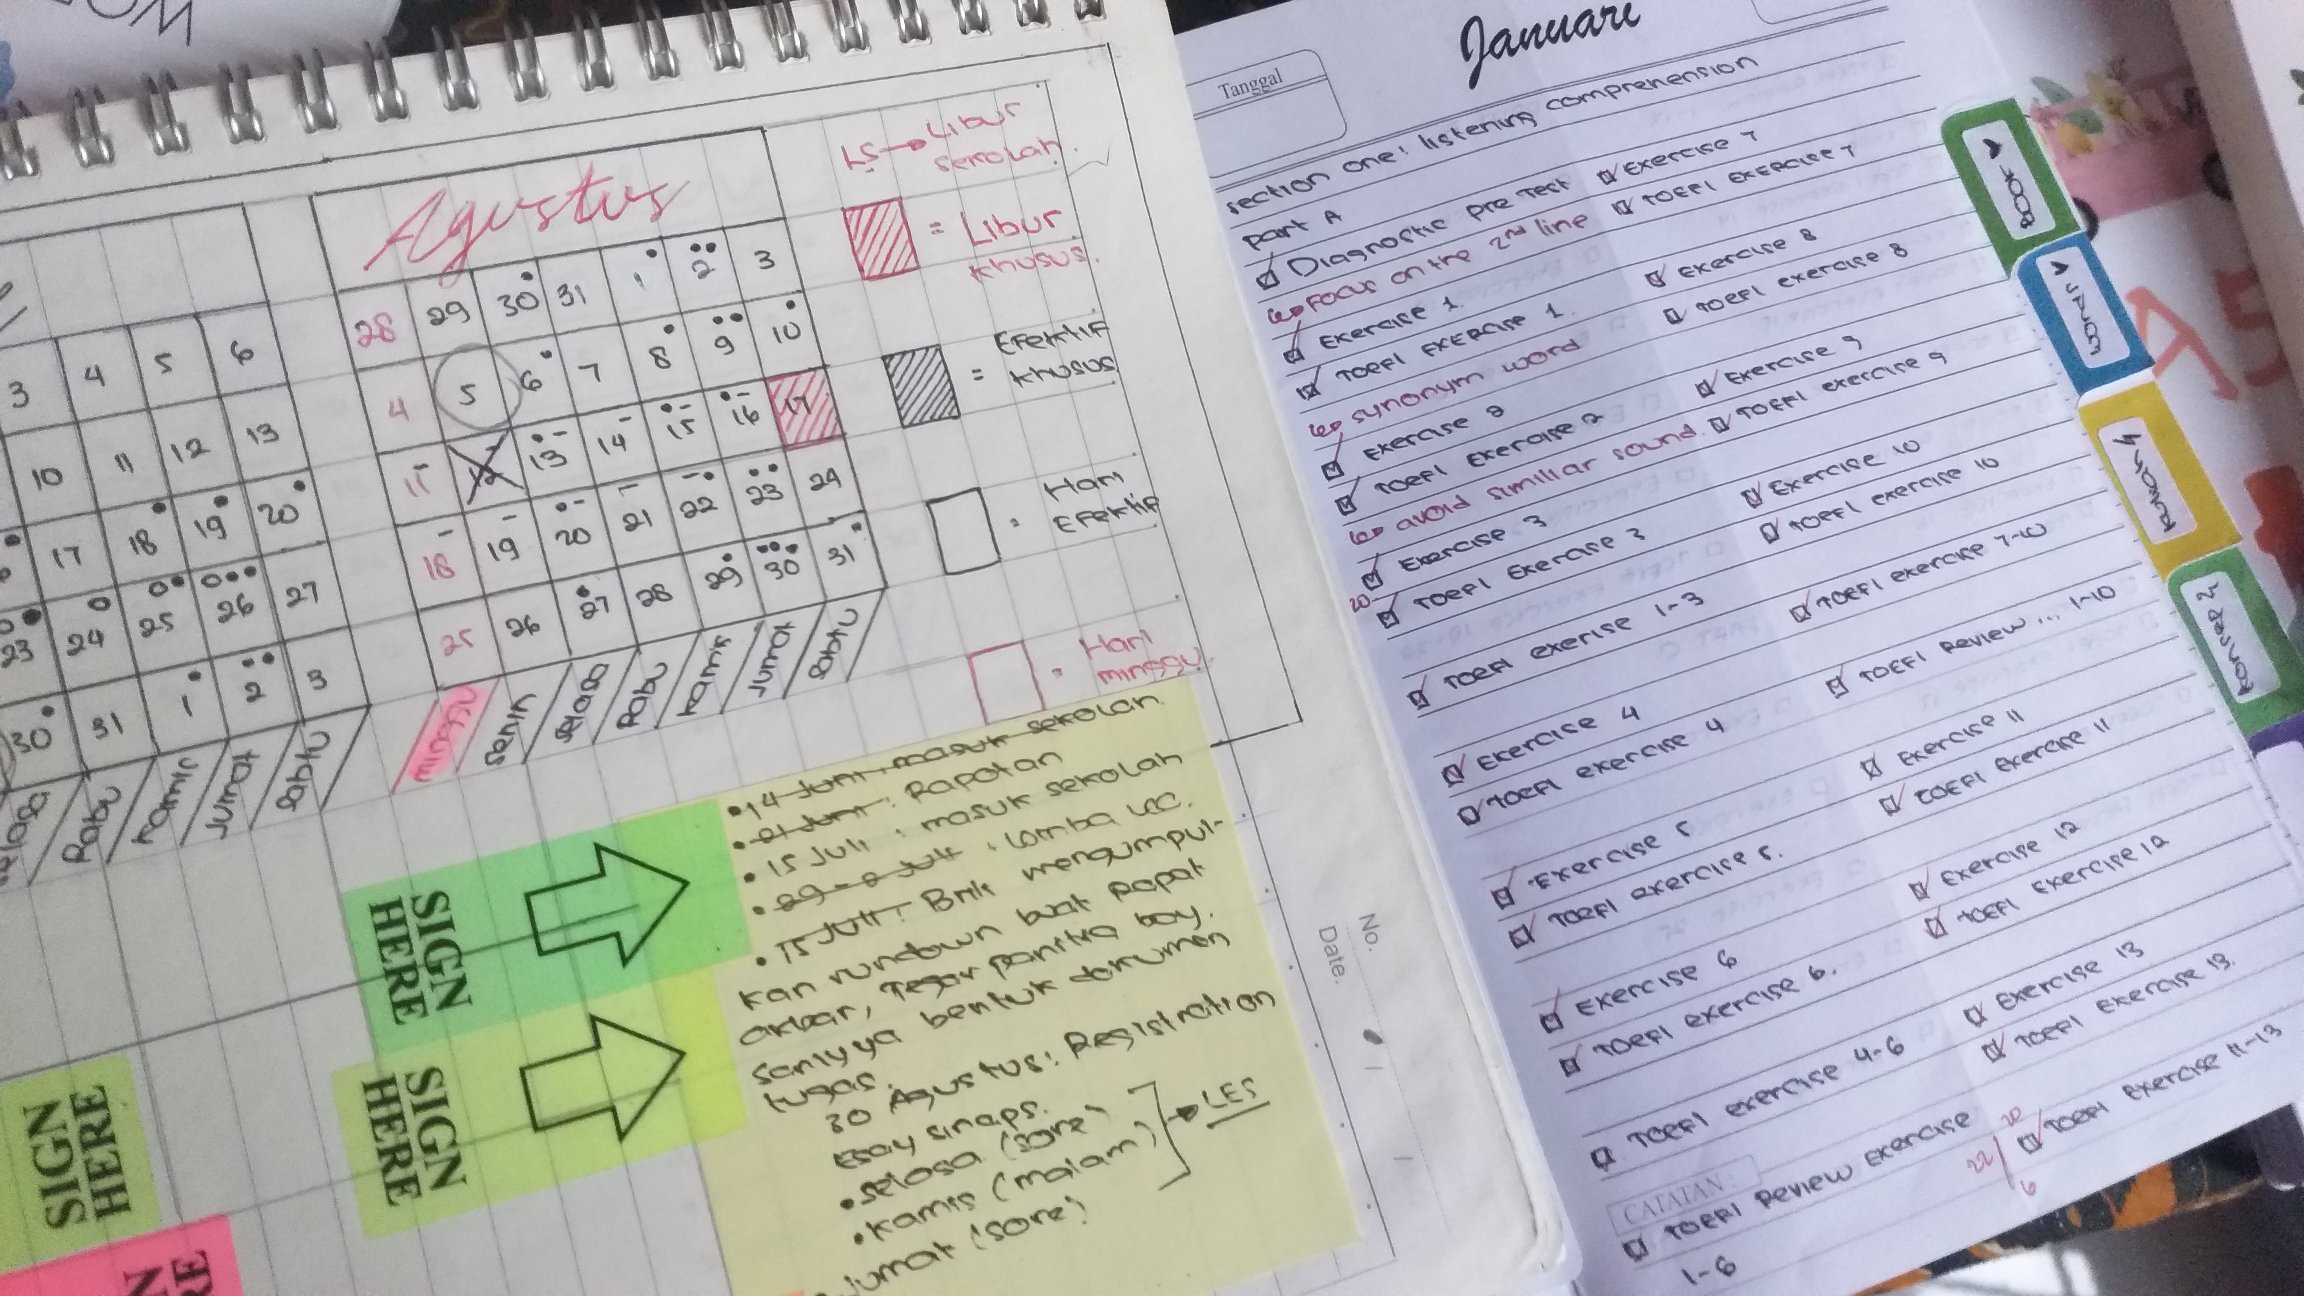 WOM
3 4 5 6
10 11 12 13
17 18 19 20
23 24 25 26 27
30 31 1 2 3
selasa Rabu Kamis Jumat Sabtu
Agustus
28 29 30 31 1 2 3
4 5 6 7 8 9 10
11 12 13 14 15 16 17
18 19 20 21 22 23 24
25 26 27 28 29 30 31
minggu senin selasa Rabu Kamis Jumat Sabtu
LS → Libur
sekolah.
= Libur
khusus.
= Efektif
khusus
= Hari
Efektif
= Hari
minggu.
SIGN
HERE
SIGN
HERE
SIGN
HERE
• 14 Juni, masuk sekolah.
• 21 Juni: Rapotan
• 15 Juli, masuk sekolah
Juli, Lomba
• 15 Juli: Brili mengumpul-
kan rundown buat rapat
akbar, Tegar panitia boy.
bentuk dokumen
tugas.
30 Agustus: Registration
Esay sinaps.
• selasa (sore)
• Kamis (malam)
Jumat (sore)
→ LES
No.
Date.
Januari
Tanggal
section one: listening comprehension
part A
Diagnostic pre Test
↳ Focus on the 2nd line
Exercise 1.
TOEFL EXERCISE 1.
↳ synonym word
Exercise 2
TOEFL Exercise 2
↳ avoid simillar sound.
Exercise 3
20
TOEFL Exercise 3
TOEFL exerise 1-3
Exercise 4
TOEFL exercise 4
Exercise 5
TOEFL exercise 5.
Exercise 6
TOEFL exercise 6.
TOEFL exercise 4-6
CATATAN:
TOEFL Review Exercise
1-6
22/
Exercise 7
TOEFL EXERCISE 7
Exercise 8
TOEFL exercise 8
Exercise 9
TOEFL exercise 9
Exercise 10
TOEFL exercise 10
TOEFL exercise 7-10
TOEFL Review... 1-10
Exercise 11
TOEFL Exercise 11
Exercise 12
TOEFL exercise 12
Exercise 13
TOEFL Exercise 13.
20
TOEFL Exercise 11-13
6